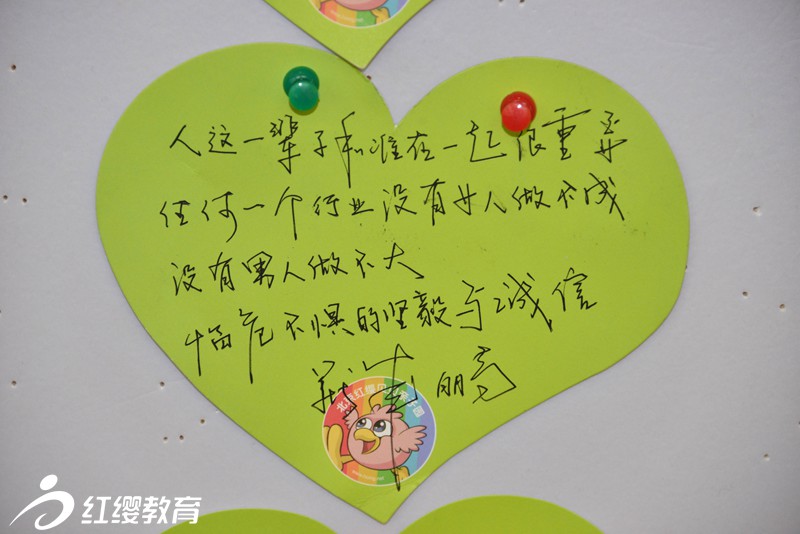 人这一辈子和谁在一起很重要
任何一个行业没有女人做不成
没有男人做不大
临危不惧的坚毅与诚信
红缨教育